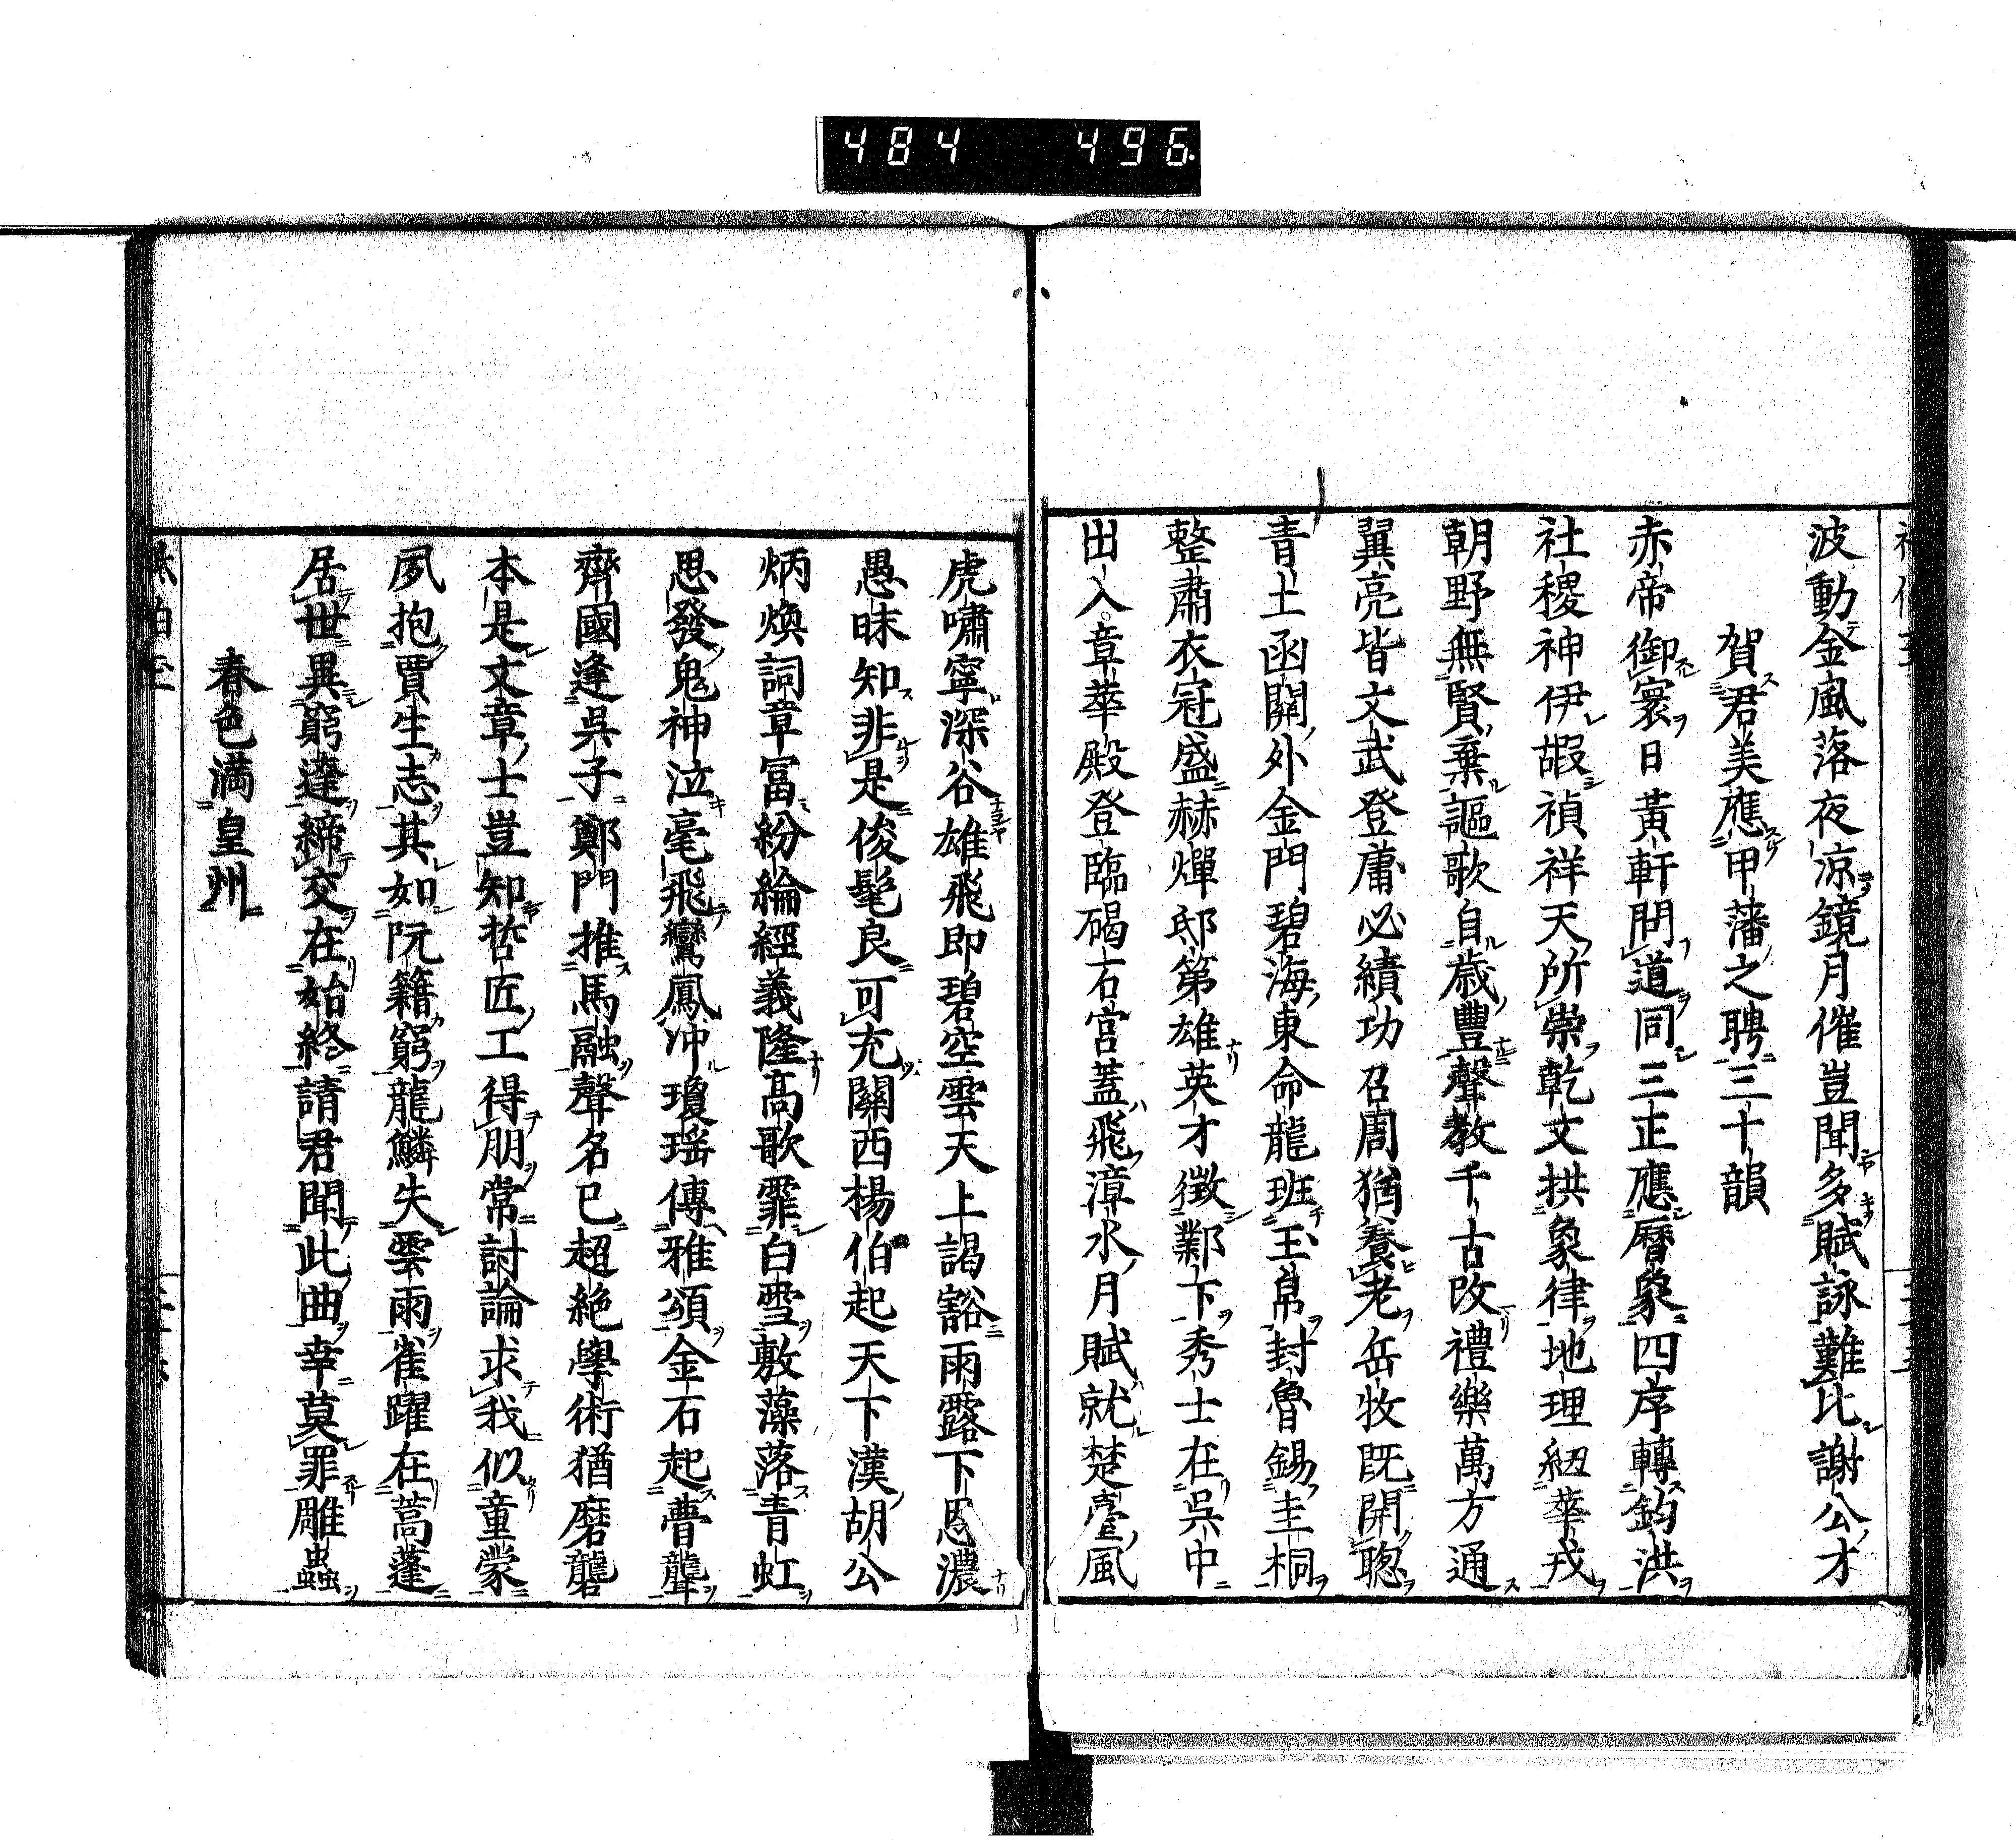 484 496
波動金風落夜凉鏡月催豈聞多賦詠難比謝公才
賀君美應甲藩之聘三十韻
赤帝御寰日黃軒問道同三正應曆象四序轉鈞洪
社稷神伊嘏禎祥天所崇乾文拱象律地理紐華戎
朝野無賢棄謳歌自歲豐聲教千古改禮樂萬方通
翼亮皆文武登庸必績功召周猶養老岳牧既開聰
青土函關外金門碧海東命龍班玉帛封魯錫圭桐
整肅衣冠盛赫燀邸第雄英才徵鄴下秀士在吳中
出入章華殿登臨碣石宮蓋飛漳水月賦就楚臺風
虎嘯寧深谷雄飛即碧空雲天上謁豁雨露下恩濃
愚昧知非是俊髦良可充關西楊伯起天下漢胡公
炳煥詞章富紛綸經義隆高歌霏白雪敷藻落青虹
思發鬼神泣毫飛鸞鳳冲瓊瑤傳雅頌金石起瞢聾
齊國逢吳子鄭門推馬融聲名已超絕學術猶磨礲
本是文章士豈知哲匠工得朋常討論求我似童蒙
夙抱賈生志其如阮籍窮龍鱗失雲雨雀躍在蒿蓬
居世異窮達締交在始終請君聞此曲幸莫罪雕蟲
春色滿皇州